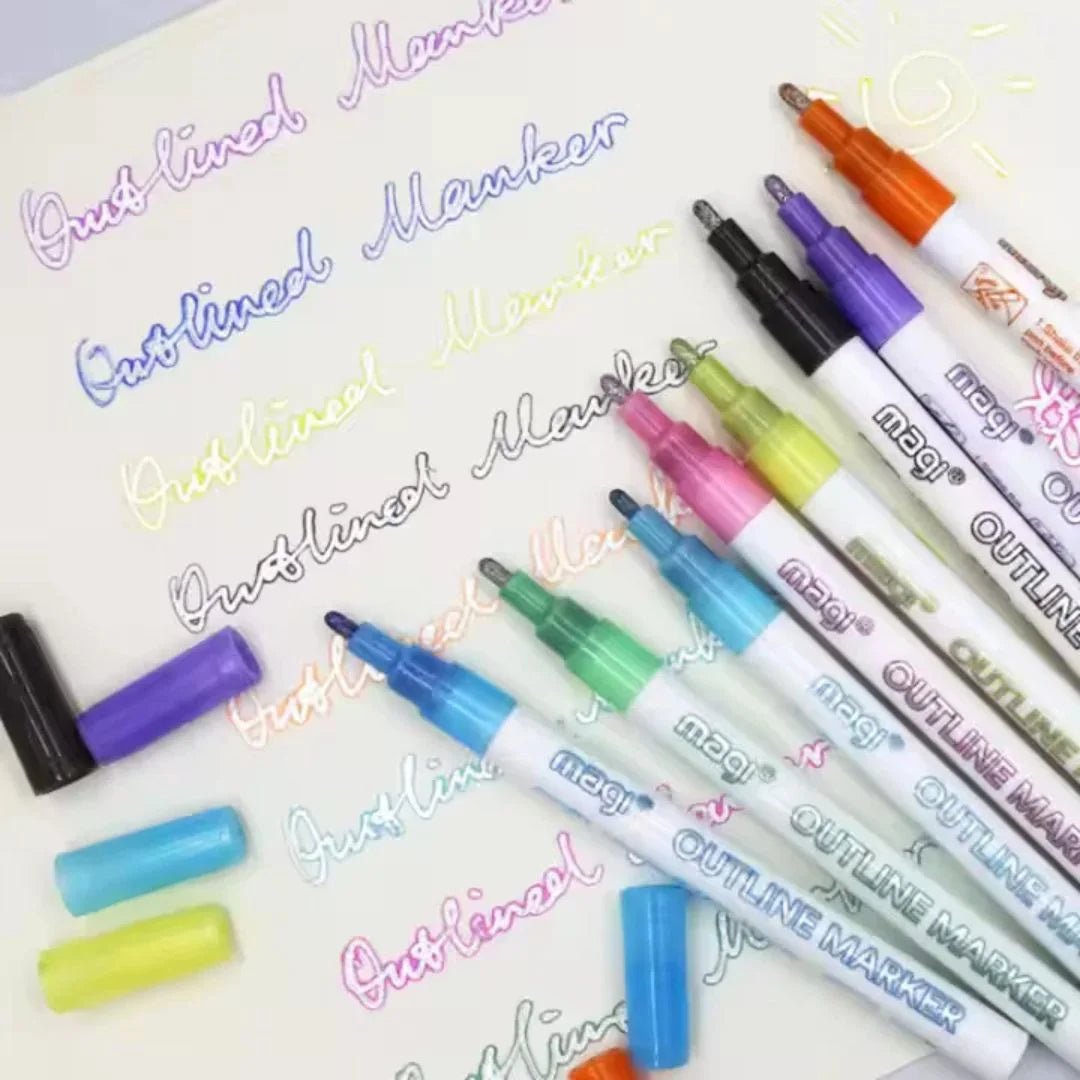 Outlined Marker
Outlined Marker
Outlined Marker
Outlined Marker
Outlined Marker
Outlined
Outlined
Outlin
magi®
magi
magi®
OUTLINE
magi
OUTLINE
magi®
OUTLINE MAR
magi
OUTLINE MA
magi®
OUTLINE MARKER
magi
OUTLINE MARKER